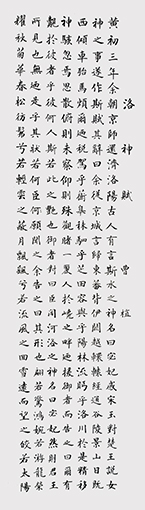 洛神賦 曹植
黃初三年余朝京師還濟洛陽古人有言斯水之神名曰宓妃感宋玉對楚王說女
神之事遂作斯賦其辭曰余從京城言歸東藩背伊闕越轘轅經通谷陵景山日既
西傾車殆馬煩爾乃稅駕乎蘅皋秣駟乎芝田容與乎陽林流眄乎洛川於是精移
神駭忽焉思散俯則未察仰則殊觀睹一麗人於巖之畔迺援御者而告之曰爾有
覿於彼者乎彼何人斯若此之艷也御者對曰臣聞河洛之神名曰宓妃然則君王
所見也無迺是乎其狀若何臣願聞之余告之曰其形也翩若驚鴻婉若游龍榮
耀秋菊華春松彷髴兮若輕雲之蔽月飄飄兮若流風之迴雪遠而望之皎若太陽